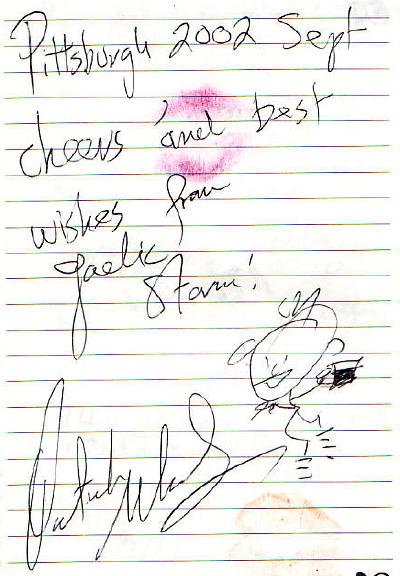 Pittsburgh 2002 Sept
cheers and best
wishes from
gaelic
Storm!